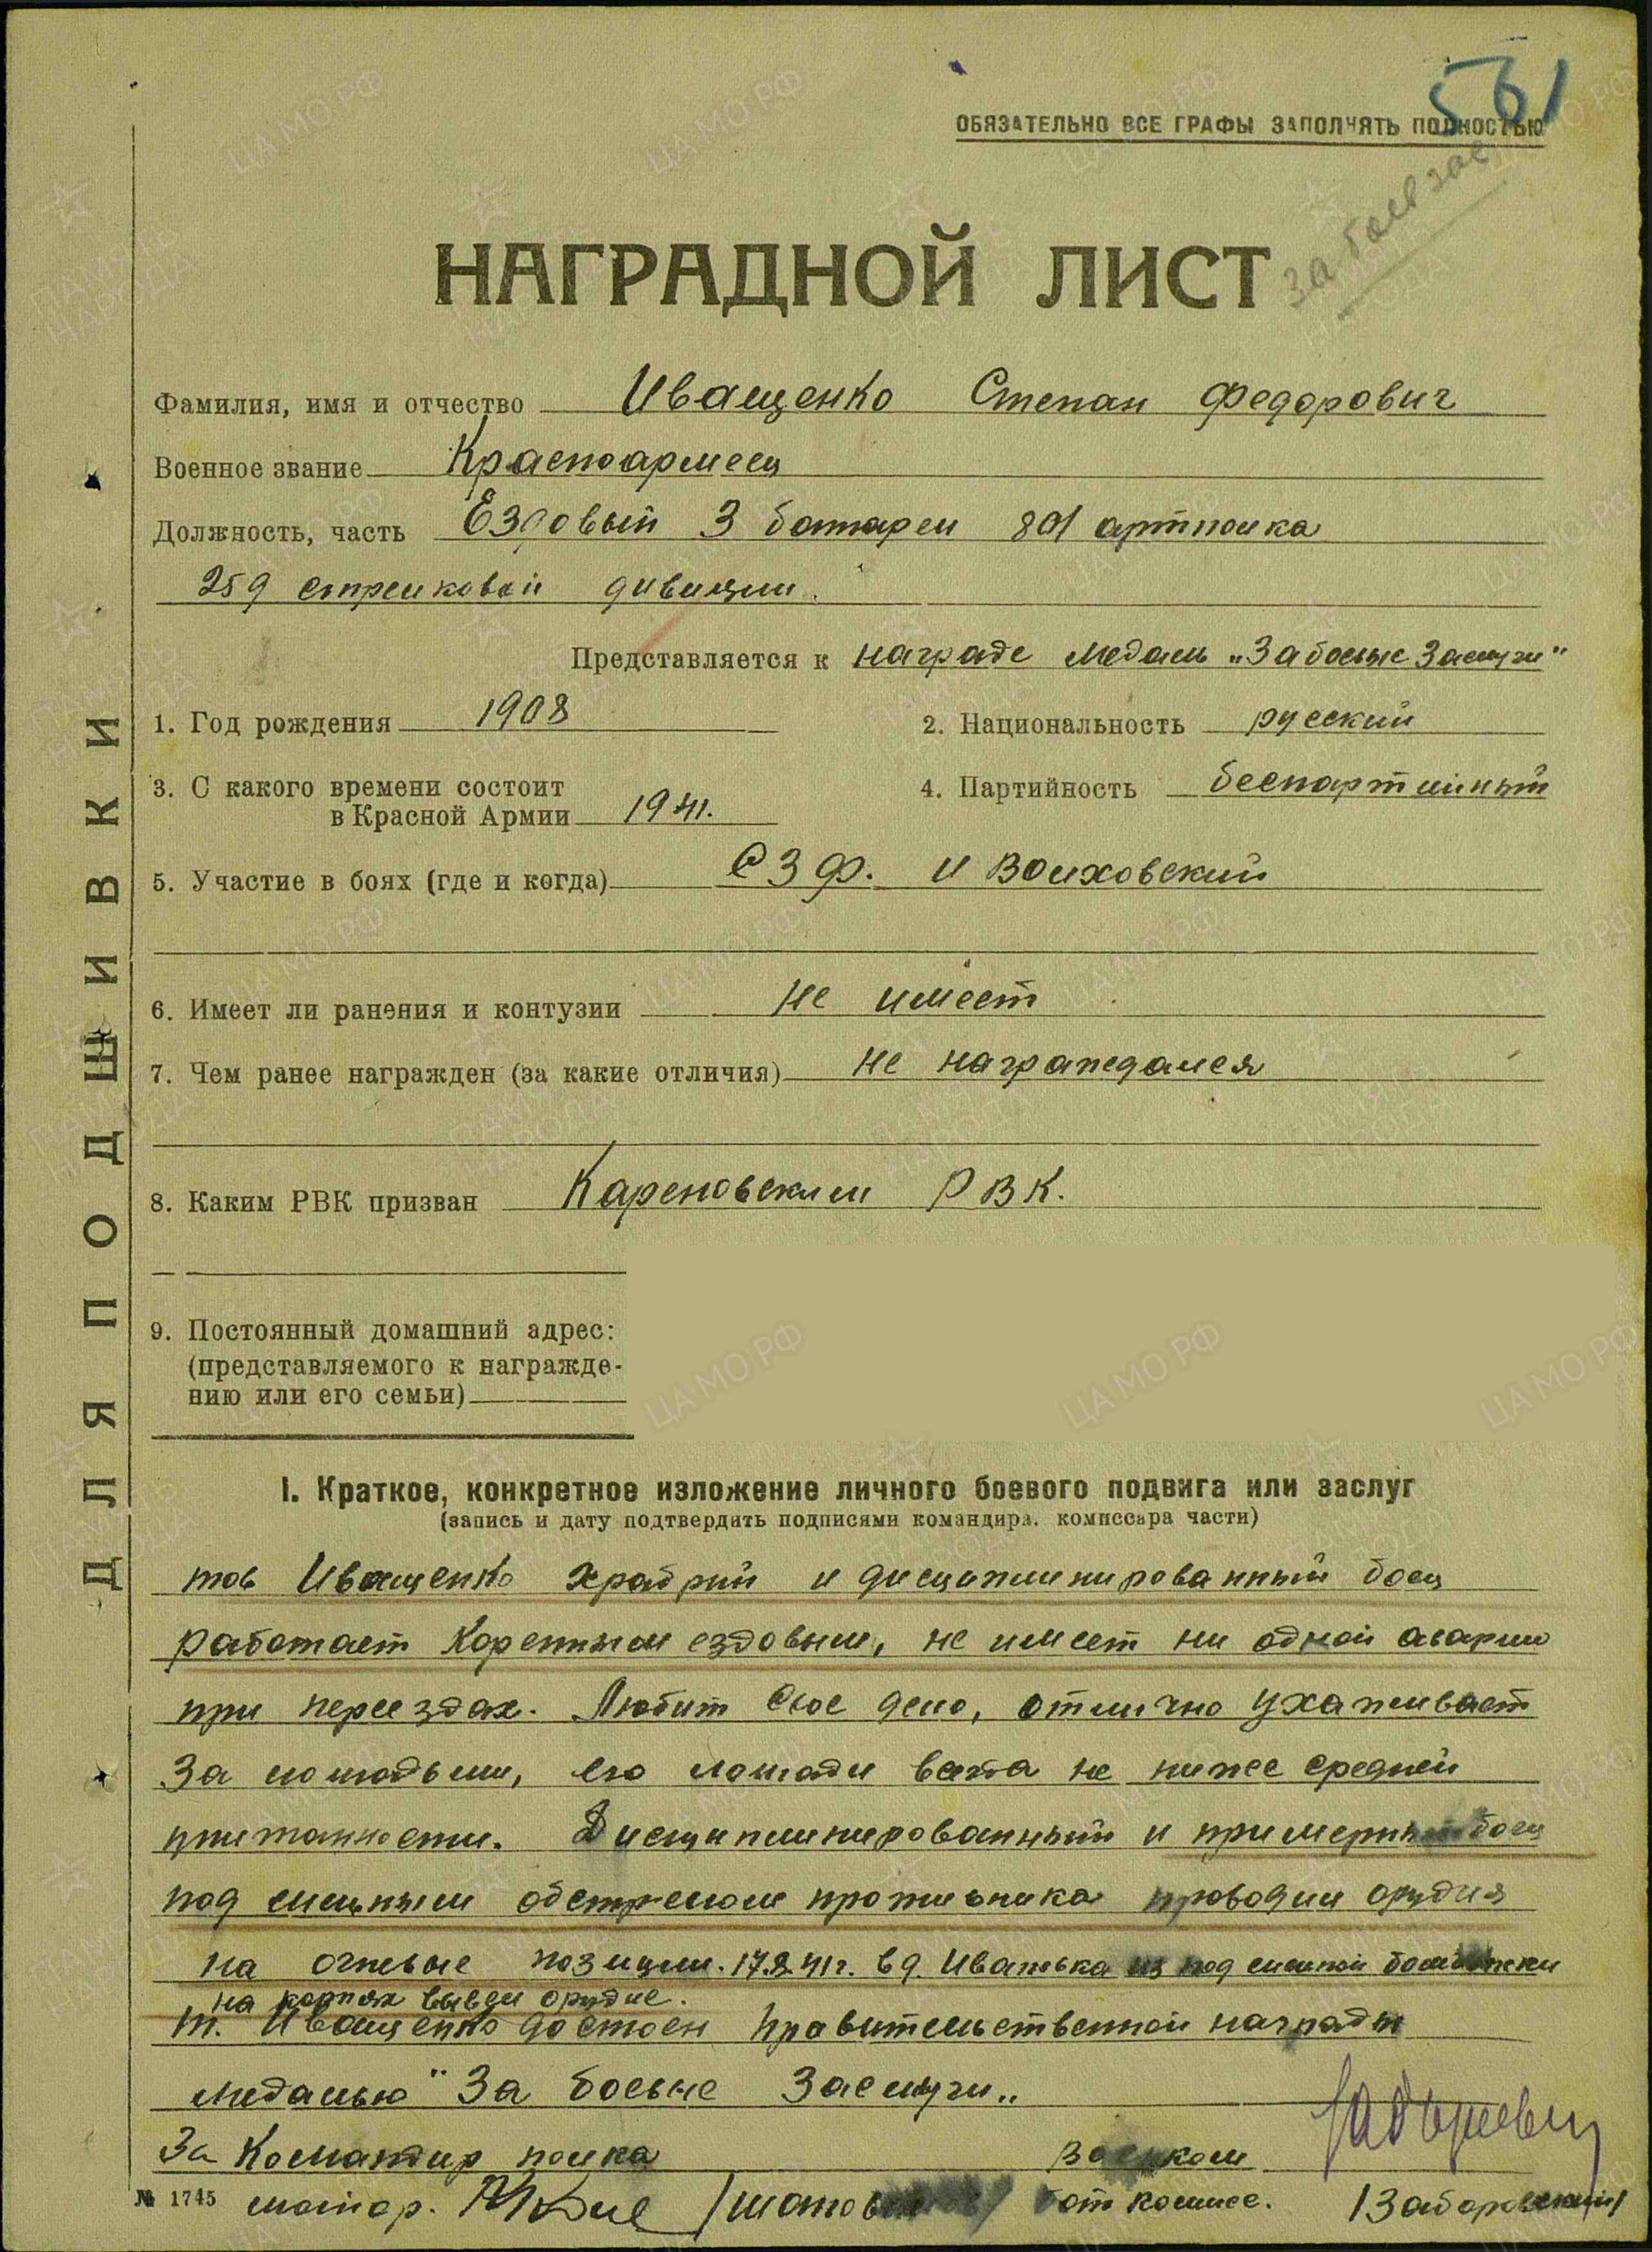 561
ОБЯЗАТЕЛЬНО ВСЕ ГРАФЫ ЗАПОЛНЯТЬ ПОЛНОСТЬЮ
За боев зас
НАГРАДНОЙ ЛИСТ
Фамилия, имя и отчество Иващенко Степан Федорович
Военное звание Красноармеец
Должность, часть Ездовый 3 батареи 801 артполка
259 стрелковой дивизии.
Представляется к награде медаль „За боевые Заслуги"
1. Год рождения 1908
2. Национальность русский
3. С какого времени состоит
в Красной Армии 1941.
4. Партийность беспартийный
5. Участие в боях (где и когда) СЗФ. и Волховский
6. Имеет ли ранения и контузии не имеет
7. Чем ранее награжден (за какие отличия) не награждался
8. Каким РВК призван Кареновским РВК.
9. Постоянный домашний адрес:
(представляемого к награжде-
нию или его семьи)
ДЛЯ ПОДШИВКИ
I. Краткое, конкретное изложение личного боевого подвига или заслуг
(запись и дату подтвердить подписями командира, комиссара части)
тов Иващенко храбрый и дисциплинированный боец
работает Коренным ездовым, не имеет ни одной аварии
при переездах. Любит свое дело, отлично ухаживает
За лошадьми, его лошади всегда не ниже средней
упитанности. Дисциплинированный и примерный боец
под сильным обстрелом противника проводил орудия
на огневые позиции. 17.9.41г. в д. Ивановка из под сильной бомбежки
на корнях вывел орудие.
т. Иващенко достоен правительственной награды
медалью "За боевые Заслуги„
За Командир полка Военком
№ 1745 майор. бат комисс. /Заборовский/
ПАМЯТЬ НАРОДА
ЦАМО РФ